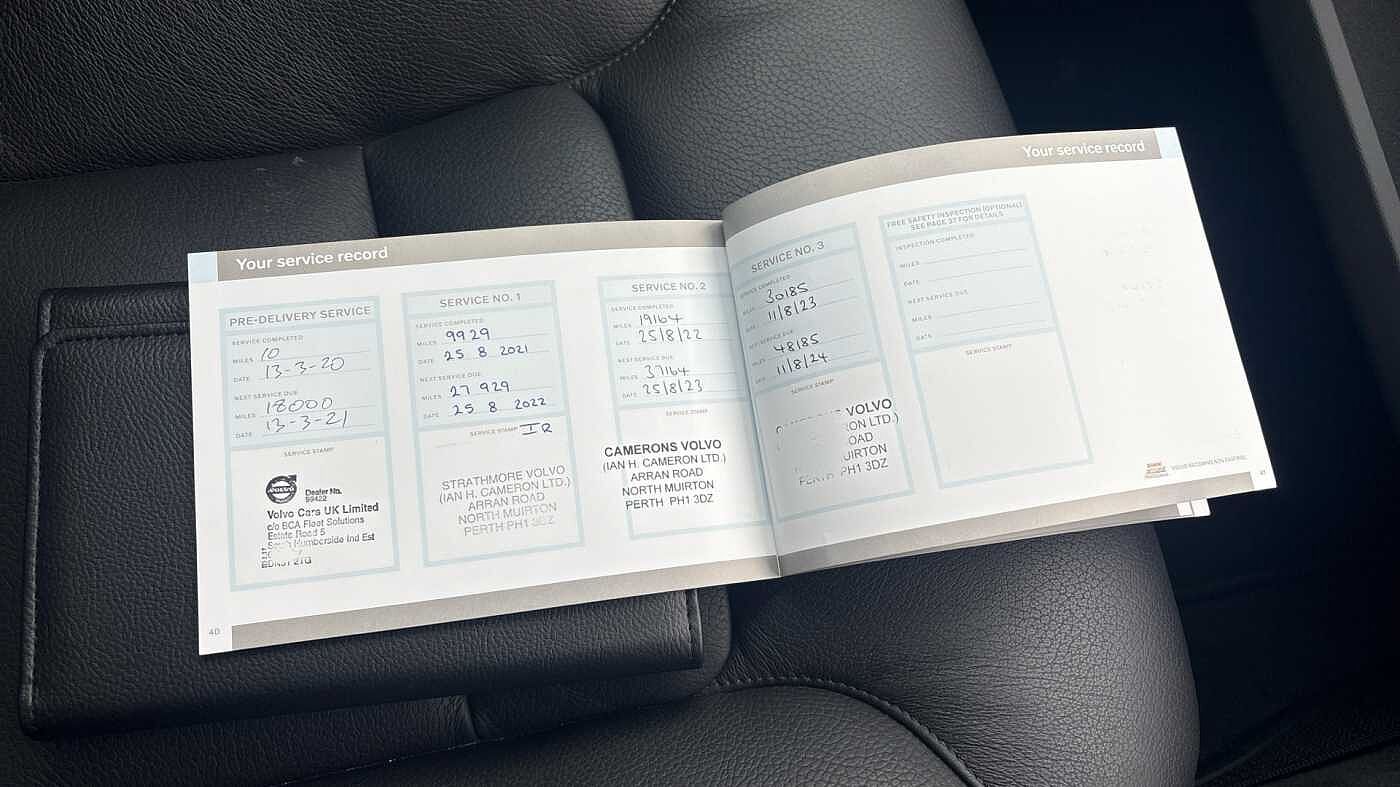 Your service record
PRE-DELIVERY SERVICE
SERVICE COMPLETED
MILES 10
DATE 13-3-20
NEXT SERVICE DUE
MILES 18000
DATE 13-3-21
SERVICE STAMP
VOLVO
Dealer No.
99422
Volvo Cars UK Limited
c/o BCA Fleet Solutions
Estate Road 5
South Humberside Ind Est
SERVICE NO. 1
SERVICE COMPLETED
MILES 9929
DATE 25 8 2021
NEXT SERVICE DUE
MILES 27 929
DATE 25 8 2022
SERVICE STAMP IR
STRATHMORE VOLVO
(IAN H. CAMERON LTD.)
ARRAN ROAD
NORTH MUIRTON
PERTH PH1 3DZ
SERVICE NO. 2
SERVICE COMPLETED
MILES 19164
DATE 25/8/22
NEXT SERVICE DUE
MILES 37164
DATE 25/8/23
SERVICE STAMP
CAMERONS VOLVO
(IAN H. CAMERON LTD.)
ARRAN ROAD
NORTH MUIRTON
PERTH PH1 3DZ
40
Your service record
SERVICE NO. 3
SERVICE COMPLETED
MILES 30185
DATE 11/8/23
NEXT SERVICE DUE
MILES 48185
DATE 11/8/24
SERVICE STAMP
VOLVO
ON LTD.)
OAD
UIRTON
PERTH PH1 3DZ
FREE SAFETY INSPECTION (OPTIONAL)
SEE PAGE 37 FOR DETAILS
INSPECTION COMPLETED
MILES
DATE
NEXT SERVICE DUE
MILES
DATE
SERVICE STAMP
41